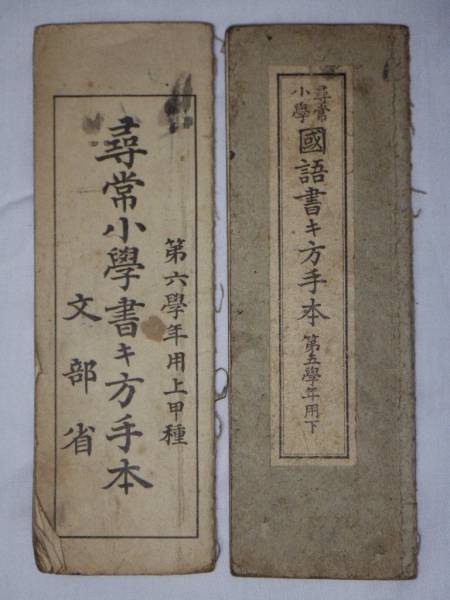 第六學年用上甲種
尋常小學書キ方手本
文部省
尋常
小學
國語書キ方手本 第五學年用下